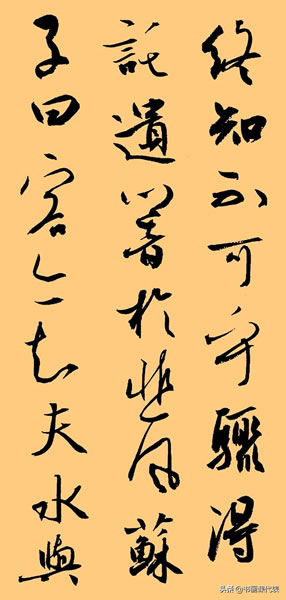 終知不可乎驟得
託遺響於悲風蘇
子曰客亦知夫水與
头条 @书画课代表